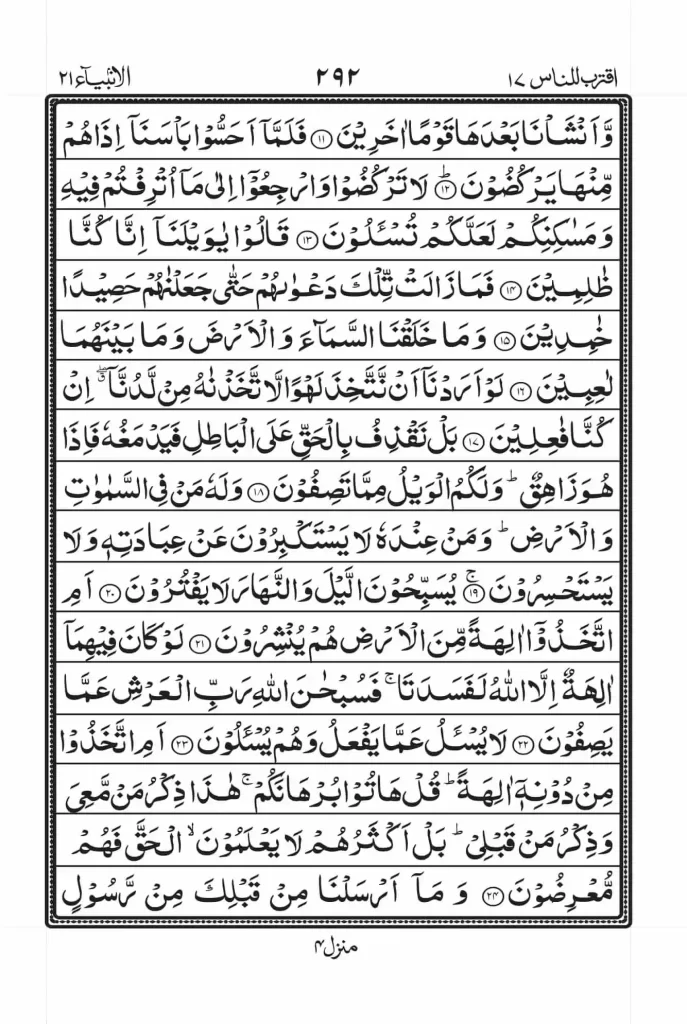 اقترب للناس ١٧ ٢٩٢ الانبیآء ٢١
وَّاَنْشَاْنَا بَعْدَهَا قَوْمًا اٰخَرِيْنَ ۝۱۱ فَلَمَّاۤ اَحَسُّوْا بَاْسَنَاۤ اِذَا هُمْ
مِّنْهَا يَرْكُضُوْنَ ۝۱۲ؕ لَا تَرْكُضُوْا وَارْجِعُوْۤا اِلٰى مَاۤ اُتْرِفْتُمْ فِيْهِ
وَمَسٰكِنِكُمْ لَعَلَّكُمْ تُسْـَٔلُوْنَ ۝۱۳ قَالُوْا يٰوَيْلَنَاۤ اِنَّا كُنَّا
ظٰلِمِيْنَ ۝۱۴ فَمَا زَالَتْ تِّلْكَ دَعْوٰىهُمْ حَتّٰى جَعَلْنٰهُمْ حَصِيْدًا
خٰمِدِيْنَ ۝۱۵ وَمَا خَلَقْنَا السَّمَآءَ وَالْاَرْضَ وَمَا بَيْنَهُمَا
لٰعِبِيْنَ ۝۱۶ لَوْ اَرَدْنَاۤ اَنْ نَّتَّخِذَ لَهْوًا لَّاتَّخَذْنٰهُ مِنْ لَّدُنَّاۤ ۖۗ اِنْ
كُنَّا فٰعِلِيْنَ ۝۱۷ بَلْ نَقْذِفُ بِالْحَقِّ عَلَى الْبَاطِلِ فَيَدْمَغُهٗ فَاِذَا
هُوَ زَاهِقٌ ؕ وَلَكُمُ الْوَيْلُ مِمَّا تَصِفُوْنَ ۝۱۸ وَلَهٗ مَنْ فِى السَّمٰوٰتِ
وَالْاَرْضِ ؕ وَمَنْ عِنْدَهٗ لَا يَسْتَكْبِرُوْنَ عَنْ عِبَادَتِهٖ وَلَا
يَسْتَحْسِرُوْنَ ۝۱۹ۚ يُسَبِّحُوْنَ الَّيْلَ وَالنَّهَارَ لَا يَفْتُرُوْنَ ۝۲۰ اَمِ
اتَّخَذُوْۤا اٰلِهَةً مِّنَ الْاَرْضِ هُمْ يُنْشِرُوْنَ ۝۲۱ لَوْ كَانَ فِيْهِمَاۤ
اٰلِهَةٌ اِلَّا اللّٰهُ لَفَسَدَتَا ۚ فَسُبْحٰنَ اللّٰهِ رَبِّ الْعَرْشِ عَمَّا
يَصِفُوْنَ ۝۲۲ لَا يُسْـَٔلُ عَمَّا يَفْعَلُ وَهُمْ يُسْـَٔلُوْنَ ۝۲۳ اَمِ اتَّخَذُوْا
مِنْ دُوْنِهٖۤ اٰلِهَةً ؕ قُلْ هَاتُوْا بُرْهَانَكُمْ ۚ هٰذَا ذِكْرُ مَنْ مَّعِىَ
وَذِكْرُ مَنْ قَبْلِىْ ؕ بَلْ اَكْثَرُهُمْ لَا يَعْلَمُوْنَ ۙ الْحَقَّ فَهُمْ
مُّعْرِضُوْنَ ۝۲۴ وَمَاۤ اَرْسَلْنَا مِنْ قَبْلِكَ مِنْ رَّسُوْلٍ
منزل ۴